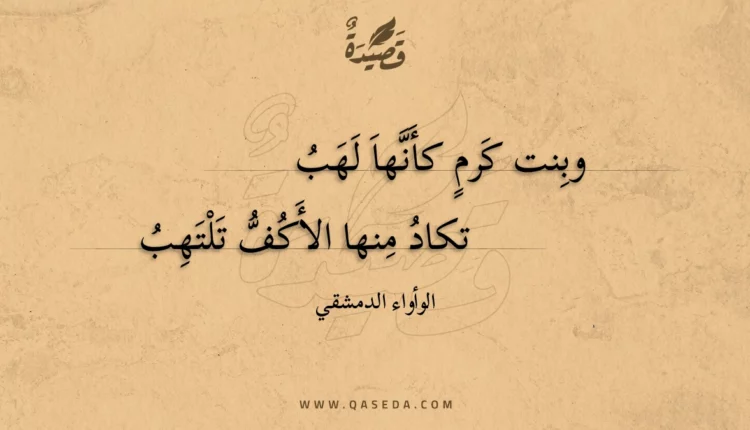 قَصِيدَةٌ
وبِنت كَرمٍ كأَنَّهاَ لَهَبُ
تكادُ مِنها الأَكُفُّ تَلْتَهِبُ
الوأواء الدمشقي
WWW.QASEDA.COM